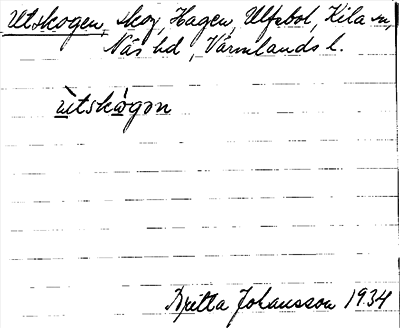 Utskogen, skog, Hagen, Ulfsbol, Kila sn,
Näs hd, Värmlands l.
ùtskògən
Britta Johansson 1934